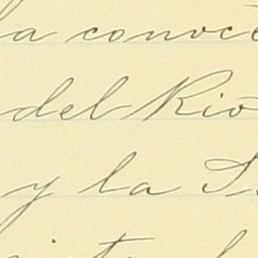 la conoce
del Rio
y la S